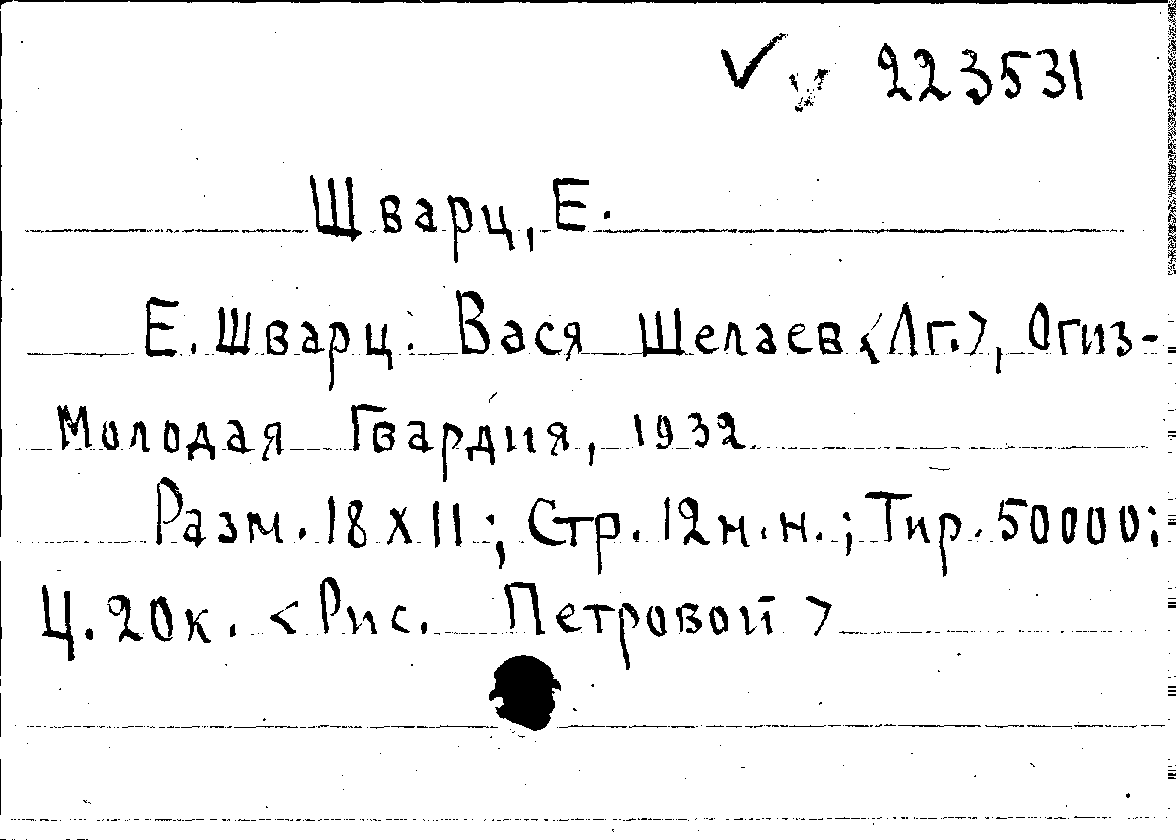 ✓ v 223531
Шварц, Е.
Е. Шварц. Вася Шелаев <Лг.>, Огиз-
Молодая Гвардия, 1932
Разм. 18 x 11; Стр. 12 н.н.; Тир. 50000;
Ц. 20 к. <Рис. Петровой>